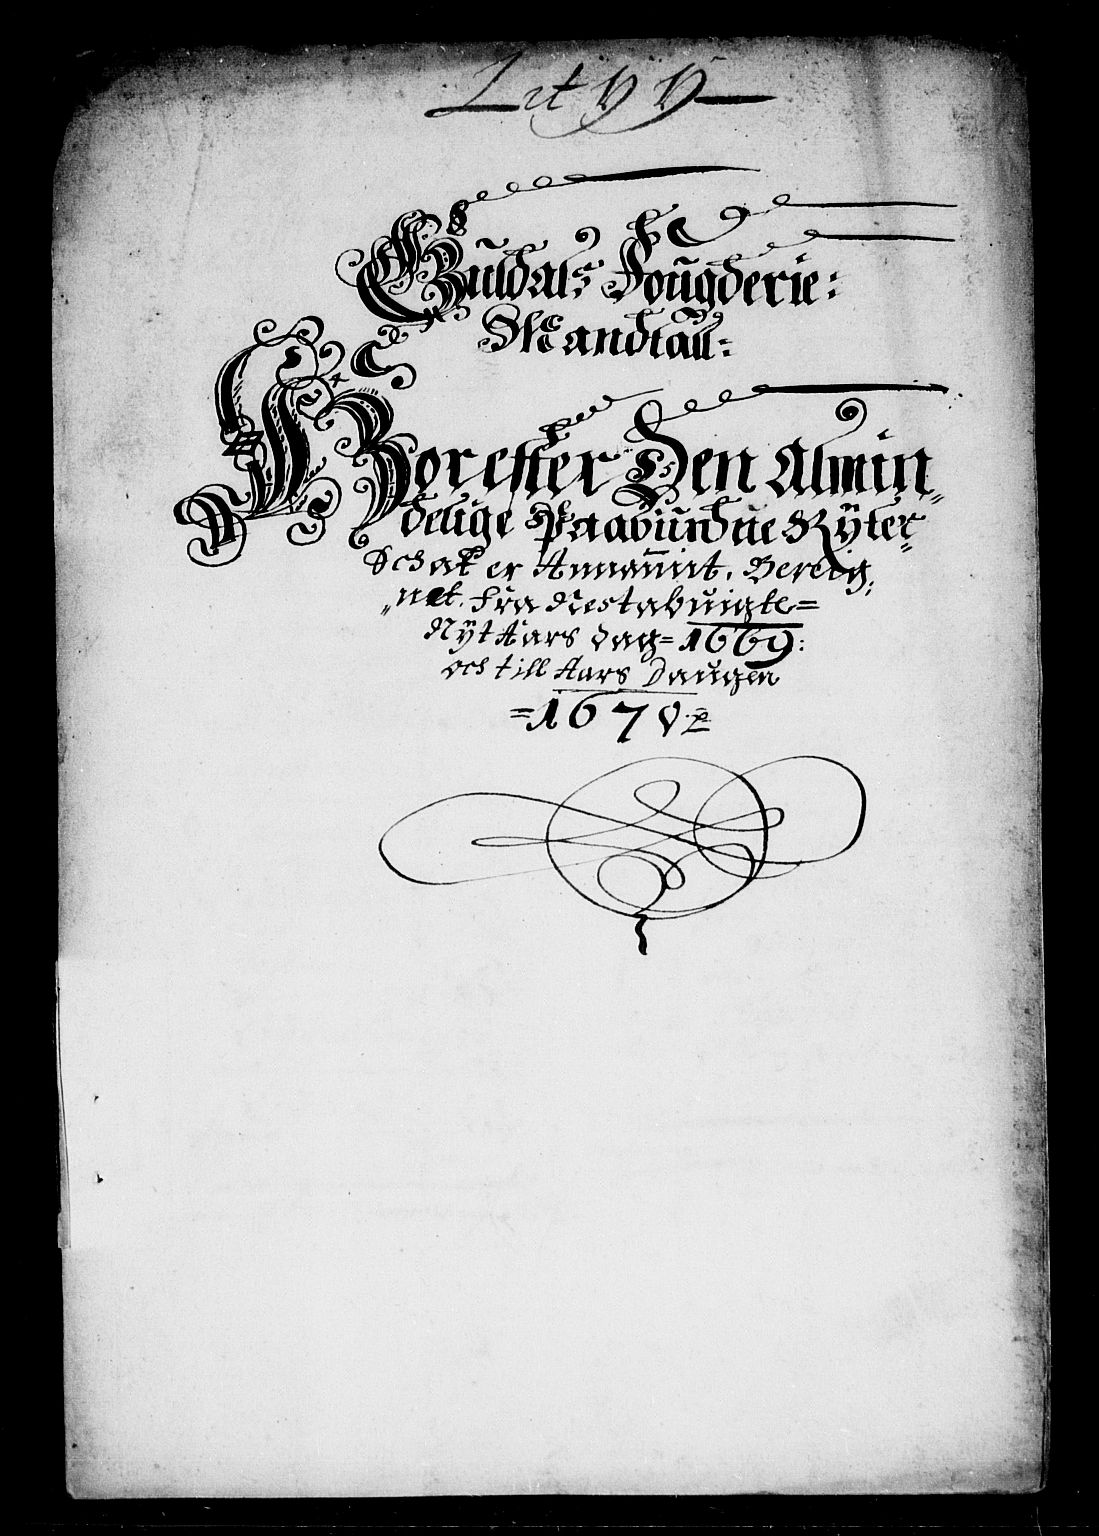 Lit YY
Guldals Fougderie:
Mandtall:
Hvorefter Den Almin„
delige Paabudne Ryter„
Schat er Annammit, Bereig„
„net. fra Nestabuigte=
Nyt Aars dag= 1669:
och till Aars Daugen
=1670